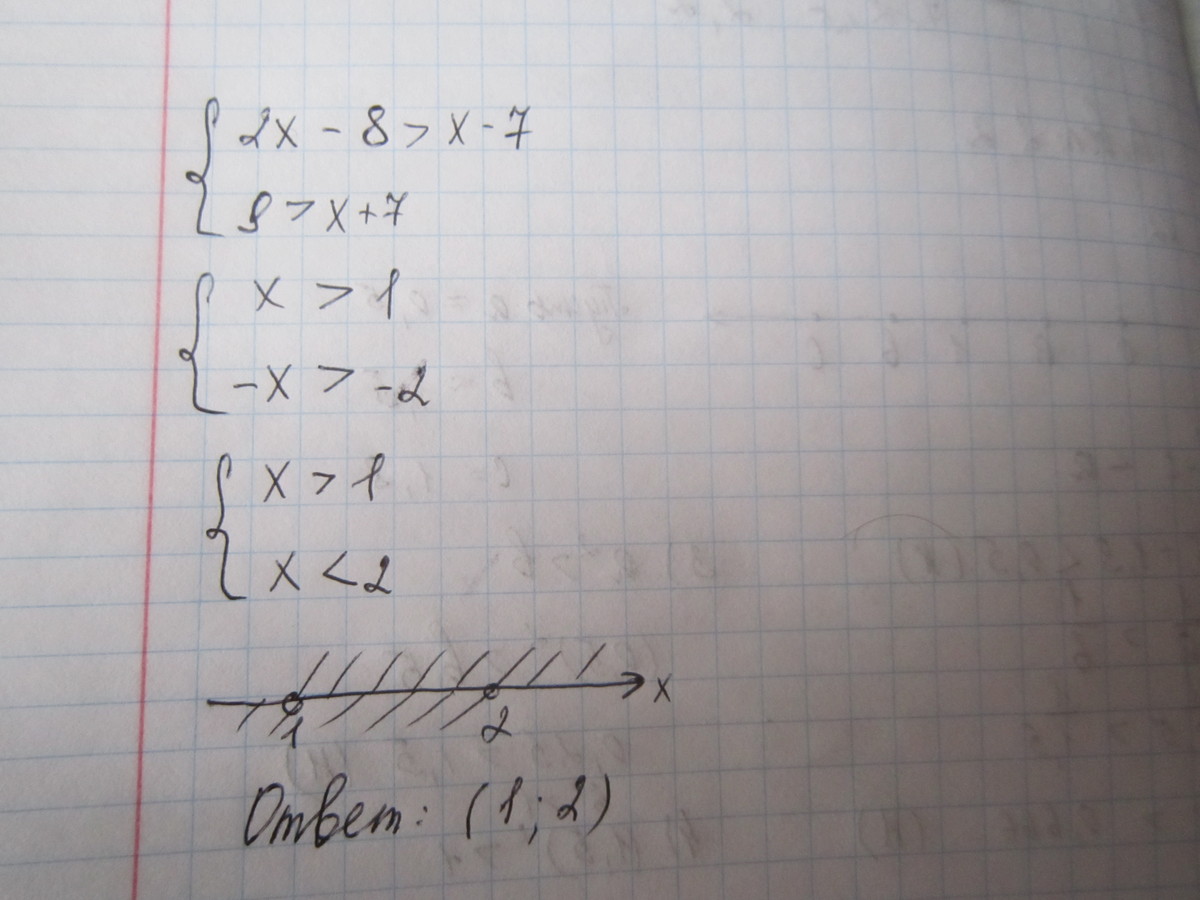 2x - 8 > x - 7
9 > x + 7
x > 1
-x > -2
x > 1
x < 2
x
1 2
Ответ: (1; 2)